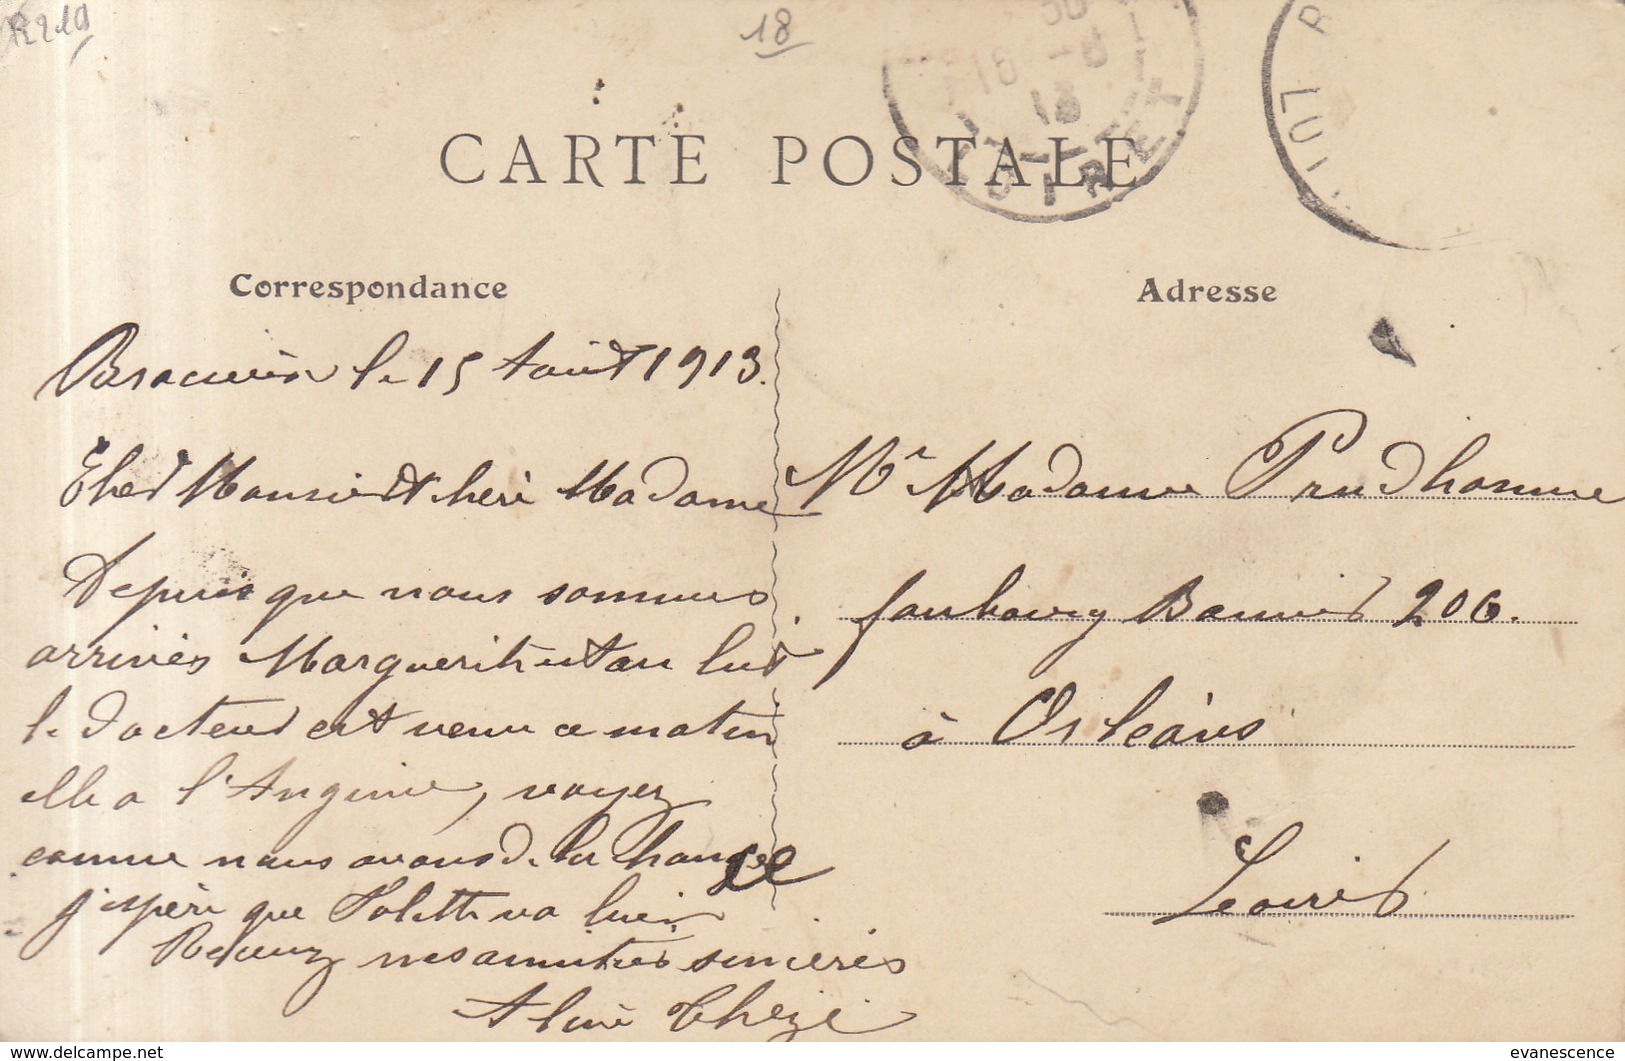 R210
18
CARTE POSTALE
Correspondance
Adresse
le 15 Août 1913.
Cher Monsieur et chère Madame
Depuis que nous sommes
arrivés Marguerite est au lit
le docteur est venu ce matin
elle a l'Angine, voyez
comme nous avons de la chance
j'espère que va bien
Recevez mes amitiés sincères
Aline
Mr Madame Prudhomme
faubourg Bannier 206.
à Orléans
Loiret
www.delcampe.net
evanescence